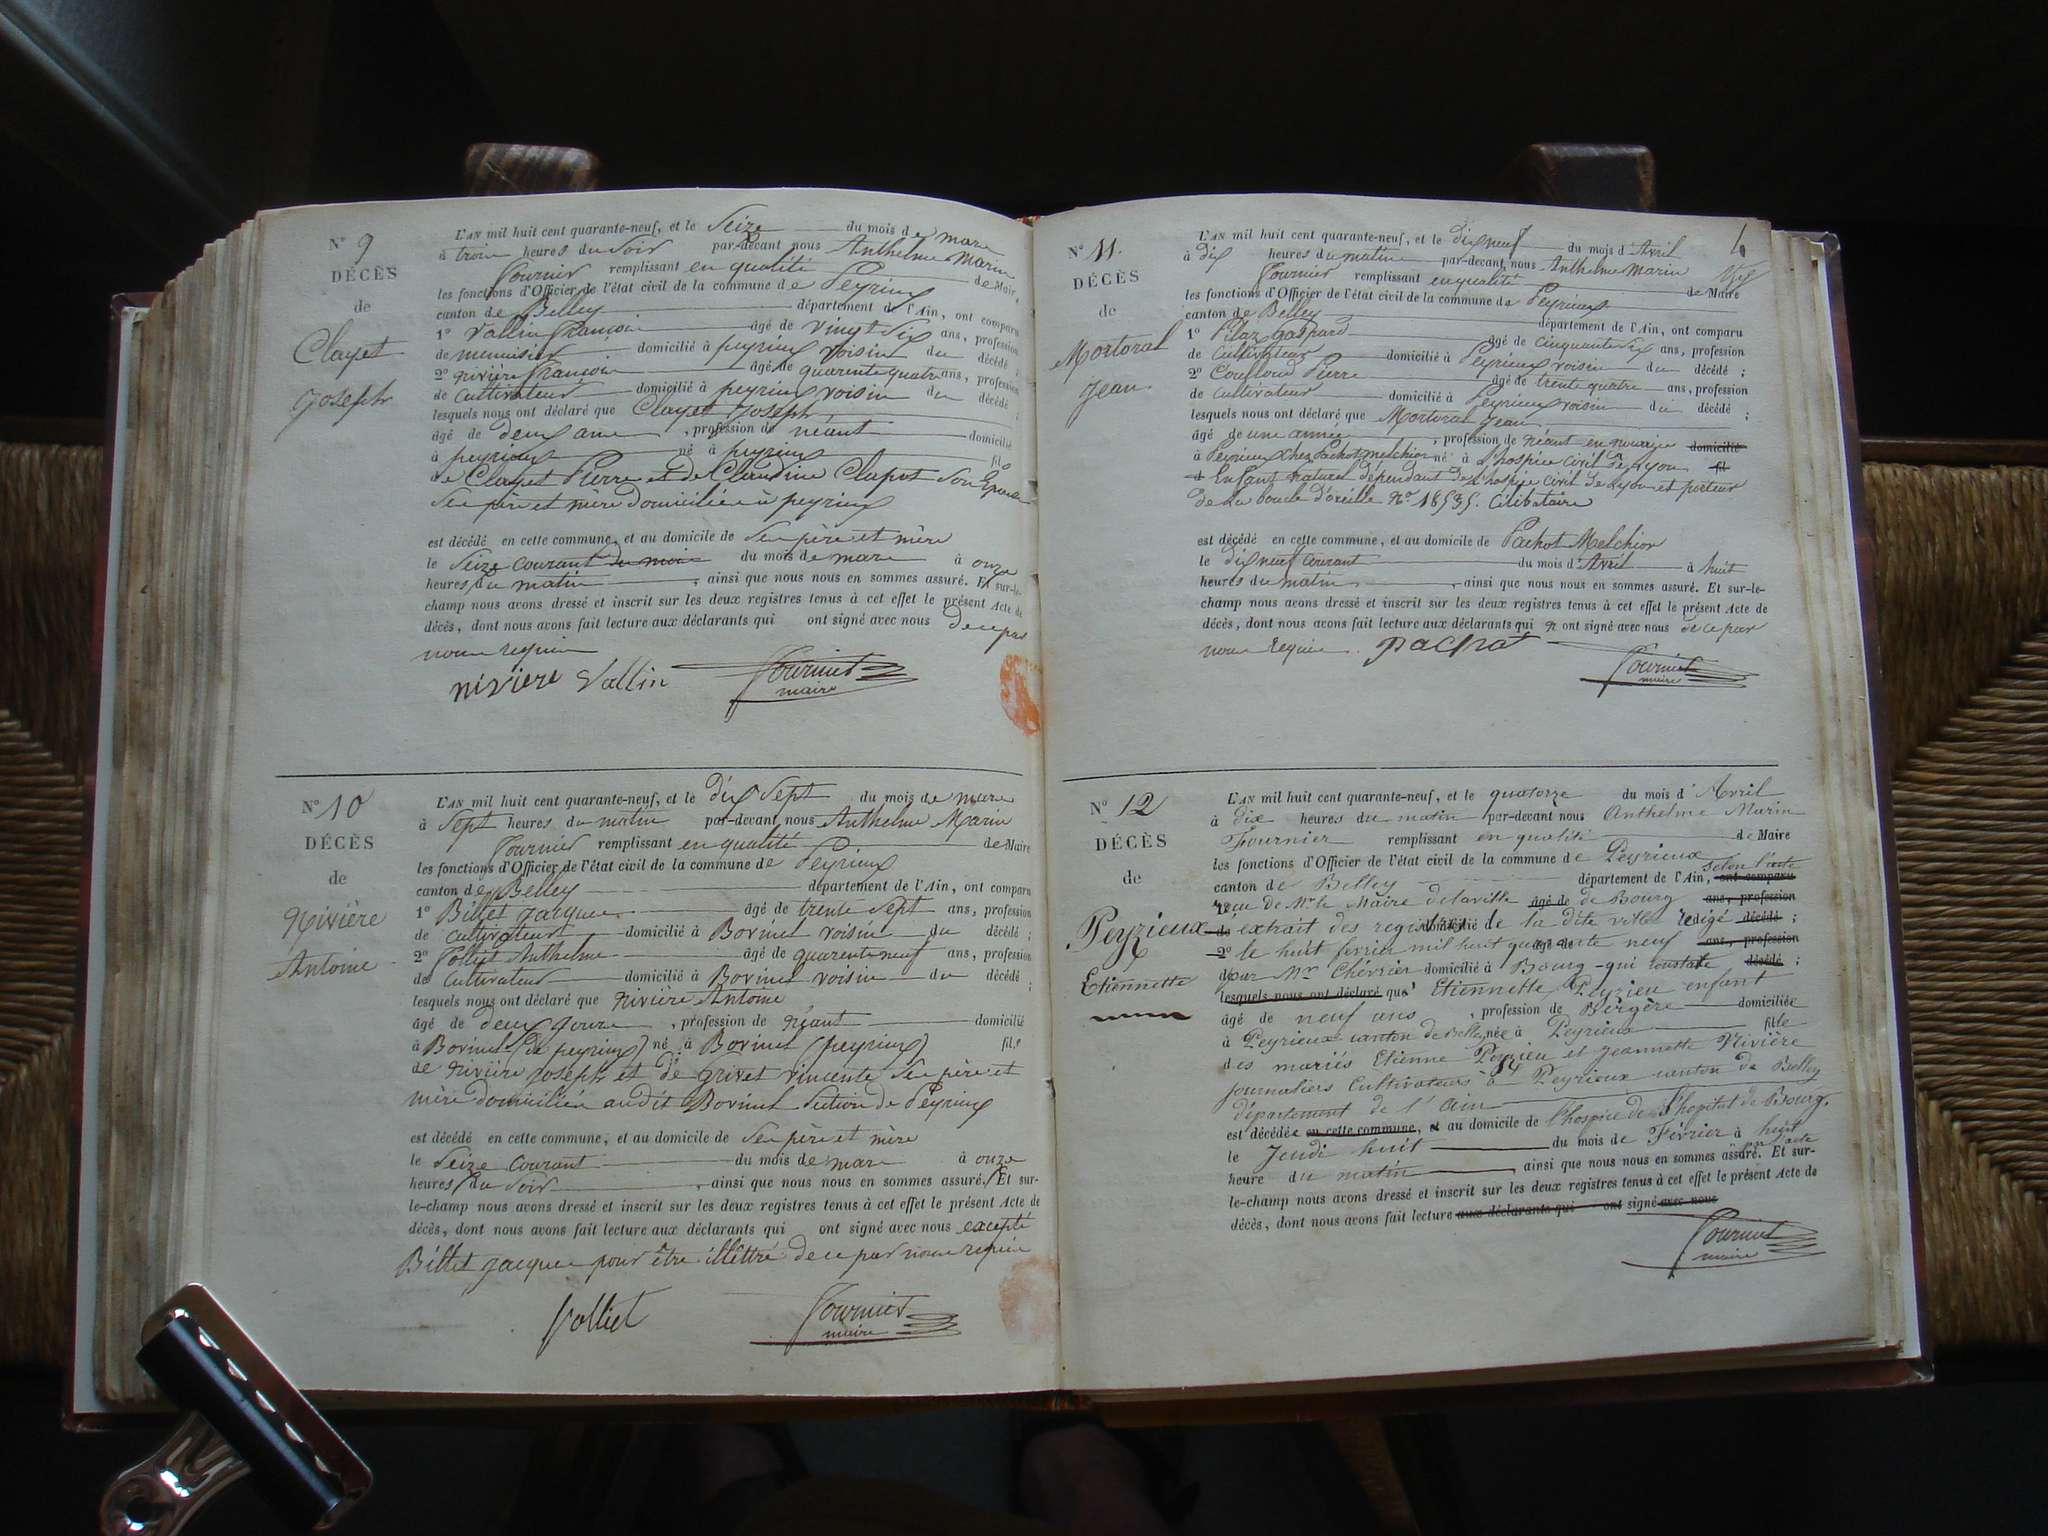 N° 9
DÉCÈS
de
Clayet
Joseph
L'AN mil huit cent quarante-neuf, et le Seize du mois de mars
à trois heures du Soir par-devant nous Anthelme Marin
Fournier remplissant en qualité de Maire,
les fonctions d'Officier de l'état civil de la commune de Peyrieux
canton de Belley département de l'Ain, ont comparu
1° Vallin françois âgé de vingt Six ans, profession
de menuisier domicilié à peyrieux voisin du décédé ;
2° Rivière françois âgé de quarente quatre ans, profession
de Cultivateur domicilié à peyrieux voisin du décédé ;
lesquels nous ont déclaré que Clayet Joseph
âgé de deux ans , profession de néant domicilié
à peyrieux né à peyrieux fils
de Clayet Pierre et de Claudine Clapot Son Epouse
Ses père et mère domiciliés à peyrieux
est décédé en cette commune, et au domicile de Ses père et mère
le Seize courant du mois du mois de mars à onze
heures du matin , ainsi que nous nous en sommes assuré. Et sur-le-
champ nous avons dressé et inscrit sur les deux registres tenus à cet effet le présent Acte de
décès, dont nous avons fait lecture aux déclarants qui ont signé avec nous de ce par
nous requis
Rivière Vallin Fournier
maire
N° 10
DÉCÈS
de
Rivière
Antoine
L'AN mil huit cent quarante-neuf, et le dix Sept du mois de mars
à Sept heures du matin par-devant nous Anthelme Marin
Fournier remplissant en qualité de Maire
les fonctions d'Officier de l'état civil de la commune de Peyrieux
canton de Belley département de l'Ain, ont comparu
1° Billet Jacques âgé de trente Sept ans, profession
de Cultivateur domicilié à Borinet voisin du décédé ;
2° Jolliet Anthelme âgé de quarente neuf ans, profession
de Cultivateur domicilié à Borinet voisin du décédé ;
lesquels nous ont déclaré que Rivière Antoine
âgé de deux Jours , profession de Néant domicilié
à Borinet (de peyrieux) né à Borinet (peyrieux) fils
de Rivière Joseph et de Grivet vincente Ses père et
mère domiciliés audit Borinet Section de Peyrieux
est décédé en cette commune, et au domicile de Ses père et mère
le Seize courant du mois de mars à onze
heures du Soir , ainsi que nous nous en sommes assuré. Et sur-
le-champ nous avons dressé et inscrit sur les deux registres tenus à cet effet le présent Acte de
décès, dont nous avons fait lecture aux déclarants qui ont signé avec nous excepté
Billet Jacques pour être illéttré de ce par nous requis
Jolliet Fournier
maire
N° 11.
DÉCÈS
de
Mortoral
Jean
L'AN mil huit cent quarante-neuf, et le dix neuf du mois d'Avril
à dix heures du matin par-devant nous Anthelme Marin
Fournier remplissant en qualité de Maire
les fonctions d'Officier de l'état civil de la commune de Peyrieux
canton de Belley département de l'Ain, ont comparu
1° Pilaz Gaspard âgé de cinquante Six ans, profession
de Cultivateur domicilié à Peyrieux voisin du décédé ;
2° Pierre âgé de trente quatre ans, profession
de Cultivateur domicilié à Peyrieux voisin du décédé ;
lesquels nous ont déclaré que Mortoral Jean
âgé de une année , profession de Néant en nourrice domicilié
à Peyrieux chez Pachot Melchior né à L'hospice civil de Lyon fil
et Enfant naturel dépendant de L'hospice civil de Lyon et porteur
de la boucle d'oreille N° 18535. Célibataire
est décédé en cette commune, et au domicile de Pachot Melchior
le dix neuf courant du mois d'Avril à huit
heures du matin , ainsi que nous nous en sommes assuré. Et sur-le-
champ nous avons dressé et inscrit sur les deux registres tenus à cet effet le présent Acte de
décès, dont nous avons fait lecture aux déclarants qui n ont signé avec nous de ce par
nous requis. Pachot Fournier
maire
N° 12
DÉCÈS
de
Peyzieux
Etiennette
L'AN mil huit cent quarante-neuf, et le quatorze du mois d'Avril
à dix heures du matin par-devant nous Anthelme Marin
Fournier remplissant en qualité de Maire
les fonctions d'Officier de l'état civil de la commune de Peyrieux
canton de Belley département de l'Ain, ont comparu selon l'acte
reçu de Mr le Maire de la ville âgé de de Bourg ans, profession
de extrait des registres domicilié de la dite ville redigé décédé ;
2° le huit fevrier mil huit quarante neuf âgé de ans, profession
par Mr Chévrier domicilié à Bourg - qui constate décédé ;
lesquels nous ont déclaré que Etiennette Peyzieu enfant
âgé de neuf ans , profession de Bergère domiciliée
à Peyrieux canton de Belley née à Peyrieux fille
des mariés Etienne Peyzieu et Jeannette Rivière
journaliers Cultivateurs à Peyrieux canton de Belley
département de l'Ain
est décédée en cette commune, et au domicile de l'hospice de l'hopital de Bourg.
le Jeudi huit du mois de Février à huit
heure du matin , ainsi que nous nous en sommes assuré. Et sur-
le-champ nous avons dressé et inscrit sur les deux registres tenus à cet effet le présent Acte de
décès, dont nous avons fait lecture aux déclarants qui ont signé avec nous
Fournier
maire